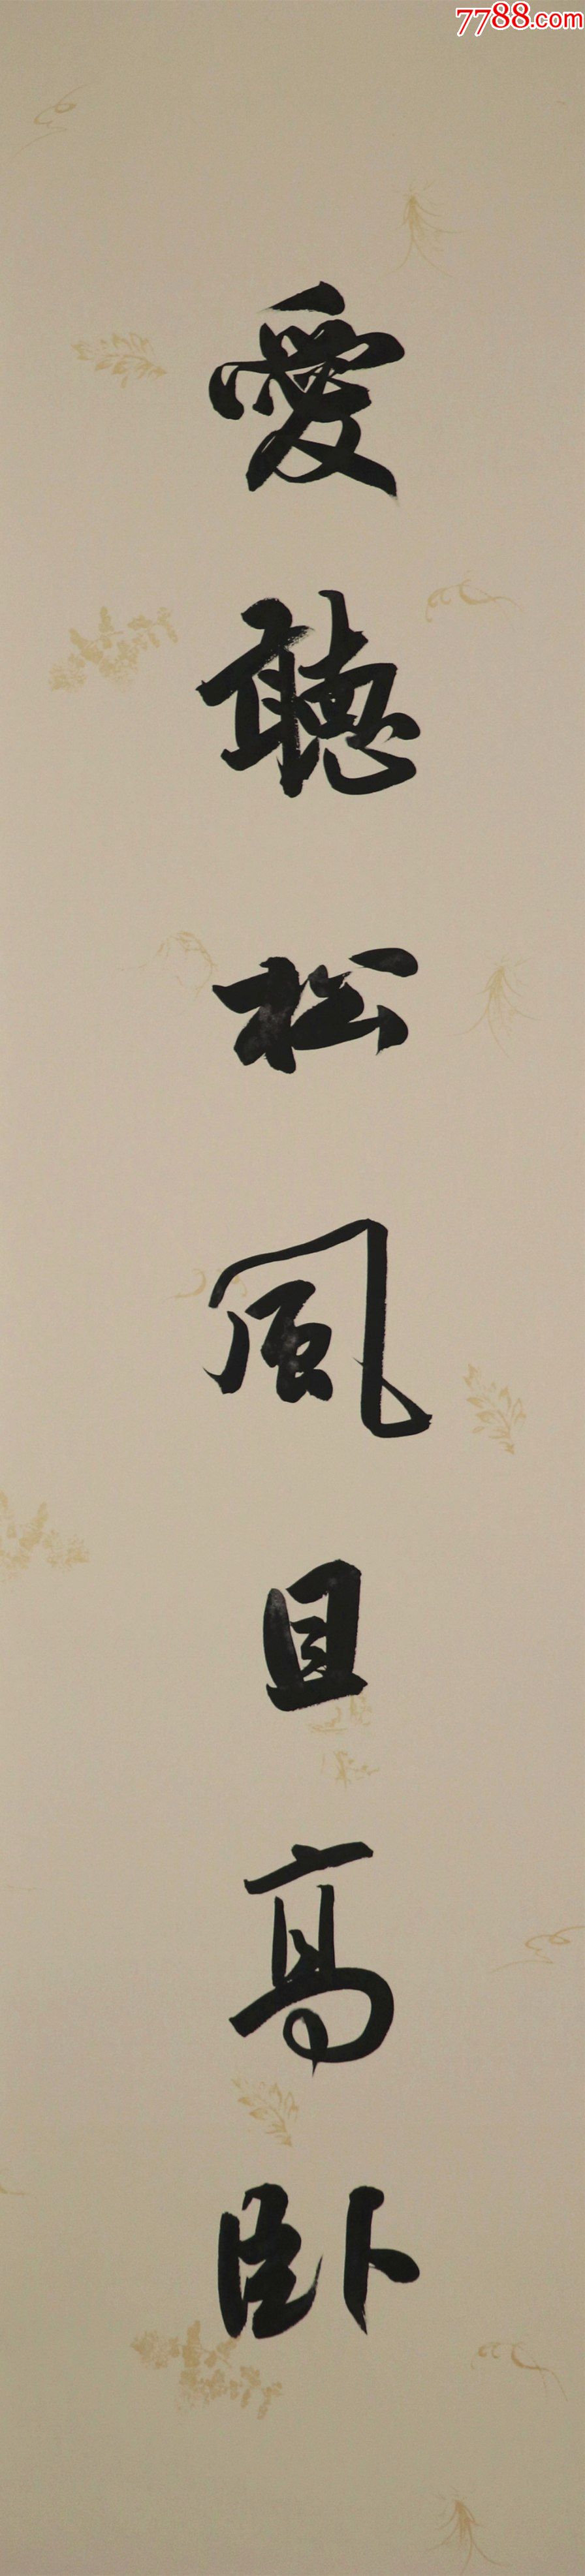 7788.com
愛聽松風且高卧